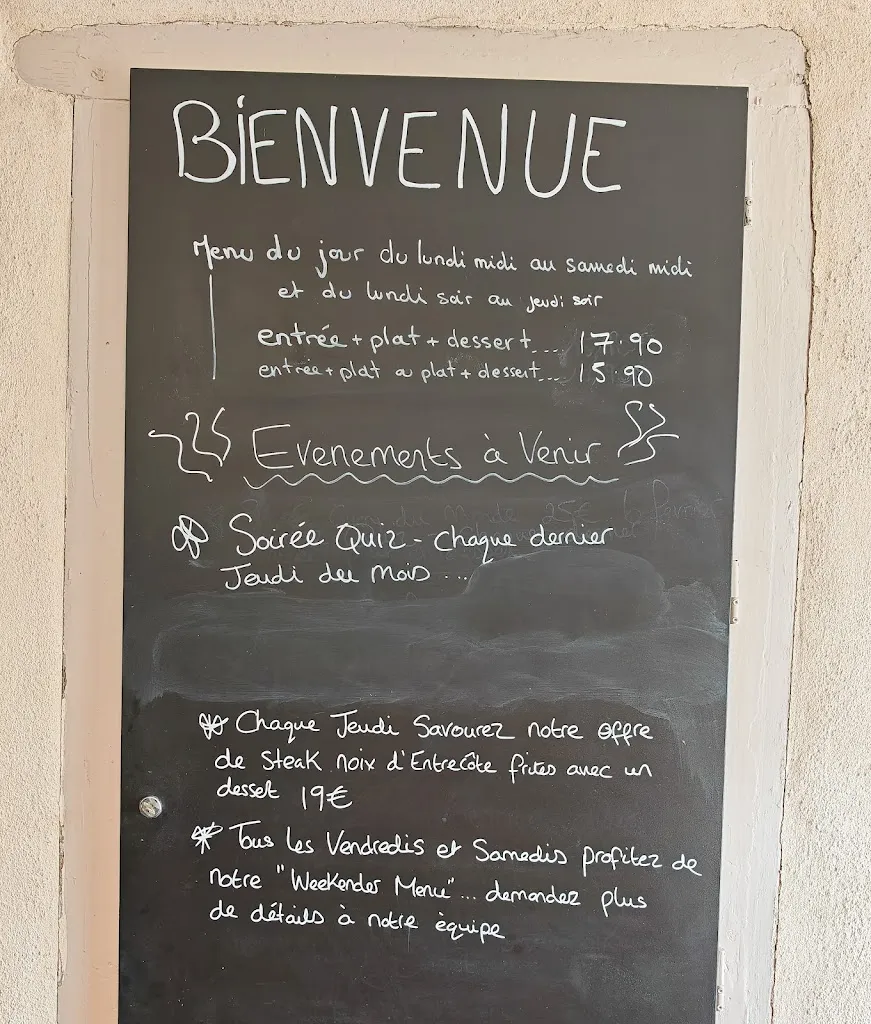 BIENVENUE
Menu du jour du lundi midi au samedi midi
et du lundi soir au jeudi soir
entrée + plat + dessert.... 17.90
entrée + plat ou plat + dessert... 15.90
Evenements à Venir
Soirée Quiz - chaque dernier
Jeudi du Mois ...
Chaque Jeudi Savourez notre offre
de steak noix d'Entrecôte frites avec un
dessert 19€
Tous les Vendredis et Samedis profitez de
notre "Weekender Menu"... demandez plus
de détails à notre èquipe